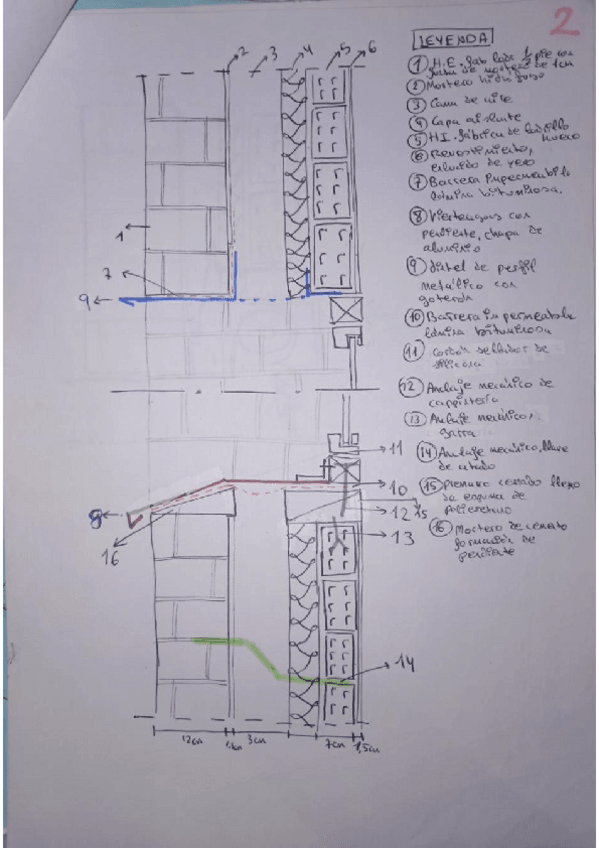 2
LEYENDA
① H.E. fab 1 pie con
junta de mortero de 1cm
② Mortero hidrófugo
③ Cama de aire
④ Capa aislante
⑤ HI. fábrica de ladrillo
hueco
⑥ Revestimiento,
de yeso
⑦ Barrera impermeable
lámina bituminosa.
⑧ Vierteaguas con
pendiente, chapa de
aluminio
⑨ dintel de perfil
metálico con
goterón
⑩ Barrera impermeable
lámina bituminosa
⑪ cordón sellador de
silicona
⑫ Anclaje mecánico de
carpintería
⑬ Anclaje mecánico,
garra
⑭ Anclaje mecánico, llave
de atado
⑮ Premarco cerrado lleno
de espuma de
poliuretano
⑯ Mortero de cemento
formación de
pendiente
2 3 4 5 6
1
7
9
11
10
8
12
15
16
13
14
12cm 3cm 7cm 1,5cm